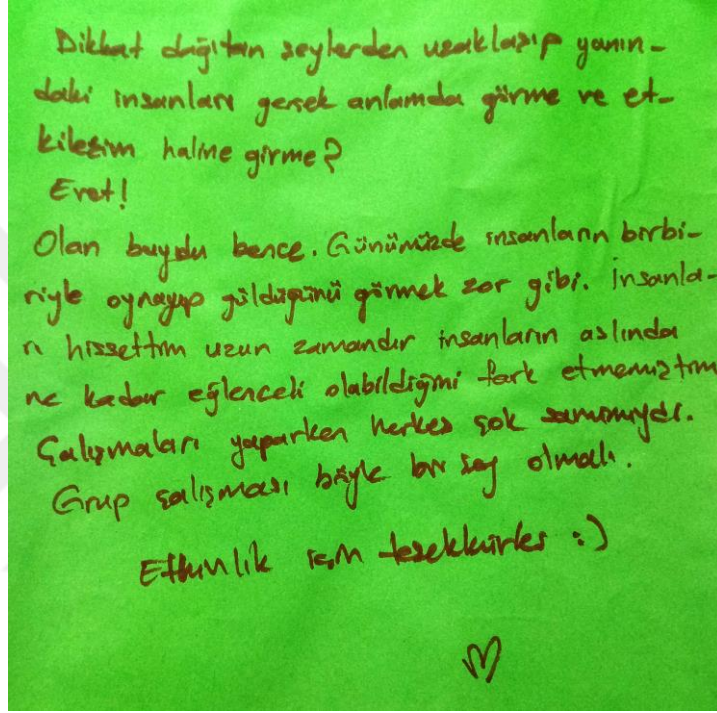 Dikkat dağıtan şeylerden uzaklaşıp yanın-
daki insanları gerçek anlamda görme ve et-
kileşim haline girme?
Evet!
Olan buydu bence. Günümüzde insanların birbi-
riyle oynayıp güldüğünü görmek zor gibi. İnsanla-
rı hissettim uzun zamandır insanların aslında
ne kadar eğlenceli olabildiğini fark etmemiştim
Çalışmaları yaparken herkes çok samimiydi.
Grup çalışması böyle bir şey olmalı.
Etkinlik için teşekkürler :)